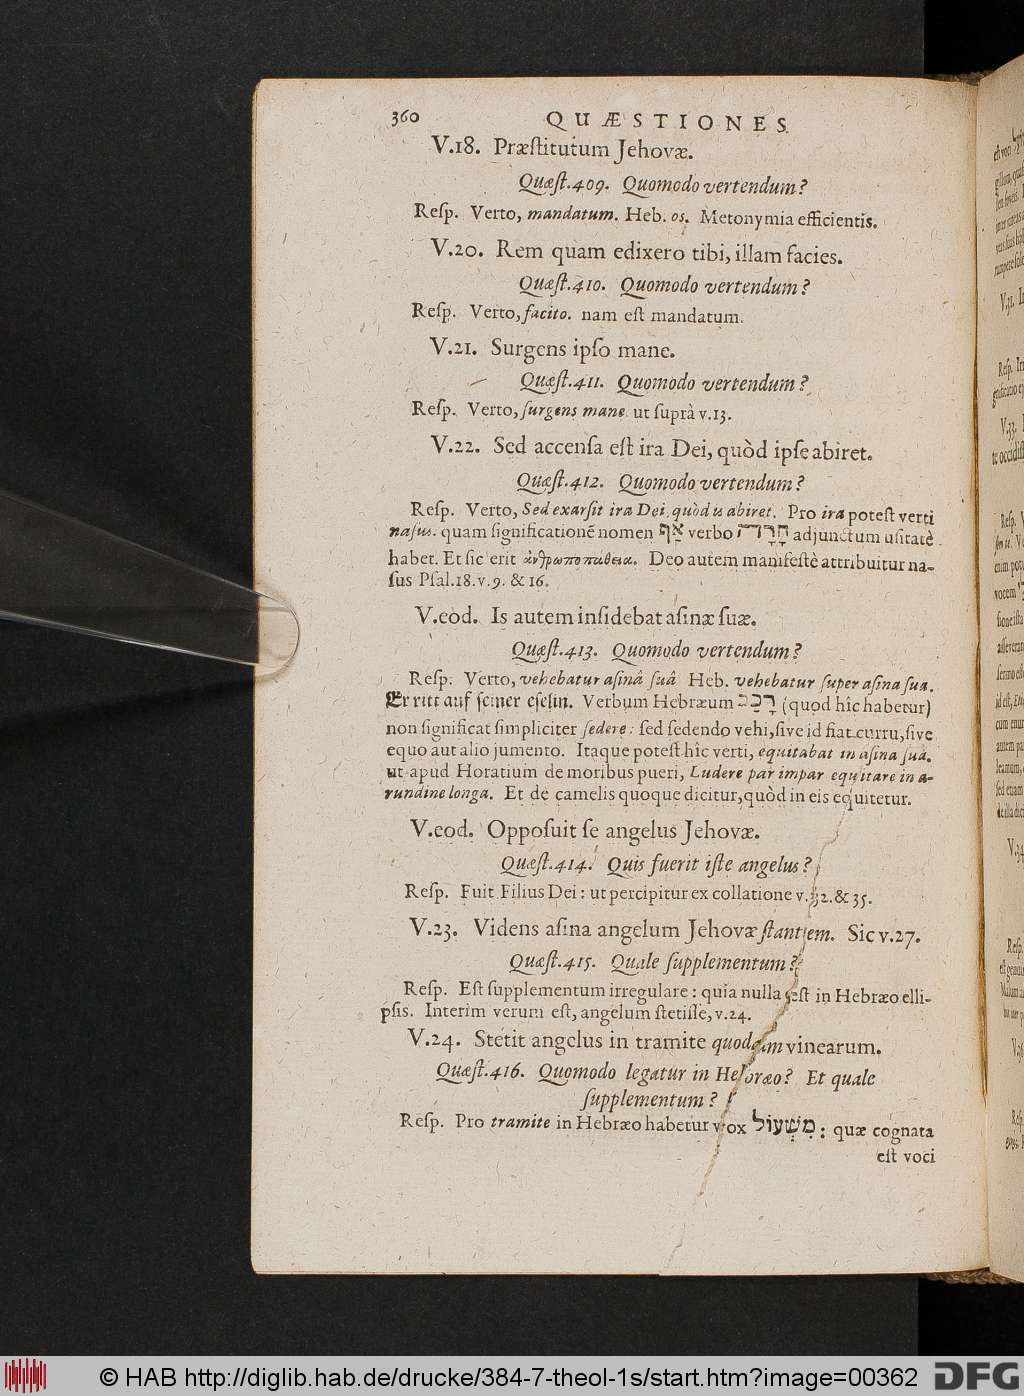 360 QUÆSTIONES
V.18. Præſtitutum Jehovæ.
Quæſt.409. Quomodo vertendum?
Reſp. Verto, mandatum. Heb. os. Metonymia efficientis.
V.20. Rem quam edixero tibi, illam facies.
Quæſt.410. Quomodo vertendum?
Reſp. Verto, facito. nam eſt mandatum.
V.21. Surgens ipſo mane.
Quæſt.411. Quomodo vertendum?
Reſp. Verto, ſurgens mane. ut ſuprà v.13.
V.22. Sed accenſa eſt ira Dei, quòd ipſe abiret.
Quæſt.412. Quomodo vertendum?
Reſp. Verto, Sed exarſit ira Dei, quòd is abiret. Pro ira poteſt verti
naſus. quam ſignificationẽ nomen אַף verbo חָרָה adjunctum uſitatè
habet. Et ſic erit ἀνθρωποπάθεια. Deo autem manifeſtè attribuitur na-
ſus Pſal.18.v.9. & 16.
V.eod. Is autem inſidebat aſinæ ſuæ.
Quæſt.413. Quomodo vertendum?
Reſp. Verto, vehebatur aſinâ ſuâ Heb. vehebatur ſuper aſina ſua.
Er ritt auf ſeiner eſelin. Verbum Hebræum רָכַב (quod hîc habetur)
non ſignificat ſimpliciter ſedere: ſed ſedendo vehi, ſive id fiat curru, ſive
equo aut alio jumento. Itaque poteſt hîc verti, equitabat in aſina ſuâ.
ut apud Horatium de moribus pueri, Ludere par impar equitare in a-
rundine longa. Et de camelis quoque dicitur, quòd in eis equitetur.
V.eod. Oppoſuit ſe angelus Jehovæ.
Quæſt.414. Quis fuerit iſte angelus?
Reſp. Fuit Filius Dei: ut percipitur ex collatione v.32.& 35.
V.23. Videns aſina angelum Jehovæ ſtantem. Sic v.27.
Quæſt.415. Quale ſupplementum?
Reſp. Eſt ſupplementum irregulare: quia nulla eſt in Hebræo elli-
pſis. Interim verum eſt, angelum ſtetiſſe, v.24.
V.24. Stetit angelus in tramite quodam vinearum.
Quæſt.416. Quomodo legatur in Hebræo? Et quale
ſupplementum?
Reſp. Pro tramite in Hebræo habetur vox מִשְׁעוֹל: quæ cognata
eſt voci
© HAB http://diglib.hab.de/drucke/384-7-theol-1s/start.htm?image=00362
DFG